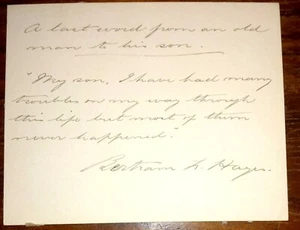 A last word from an old
man to his son.
"My son, I have had many
troubles on my way through
this life but most of them
never happened."
Bertram L. Hayes.